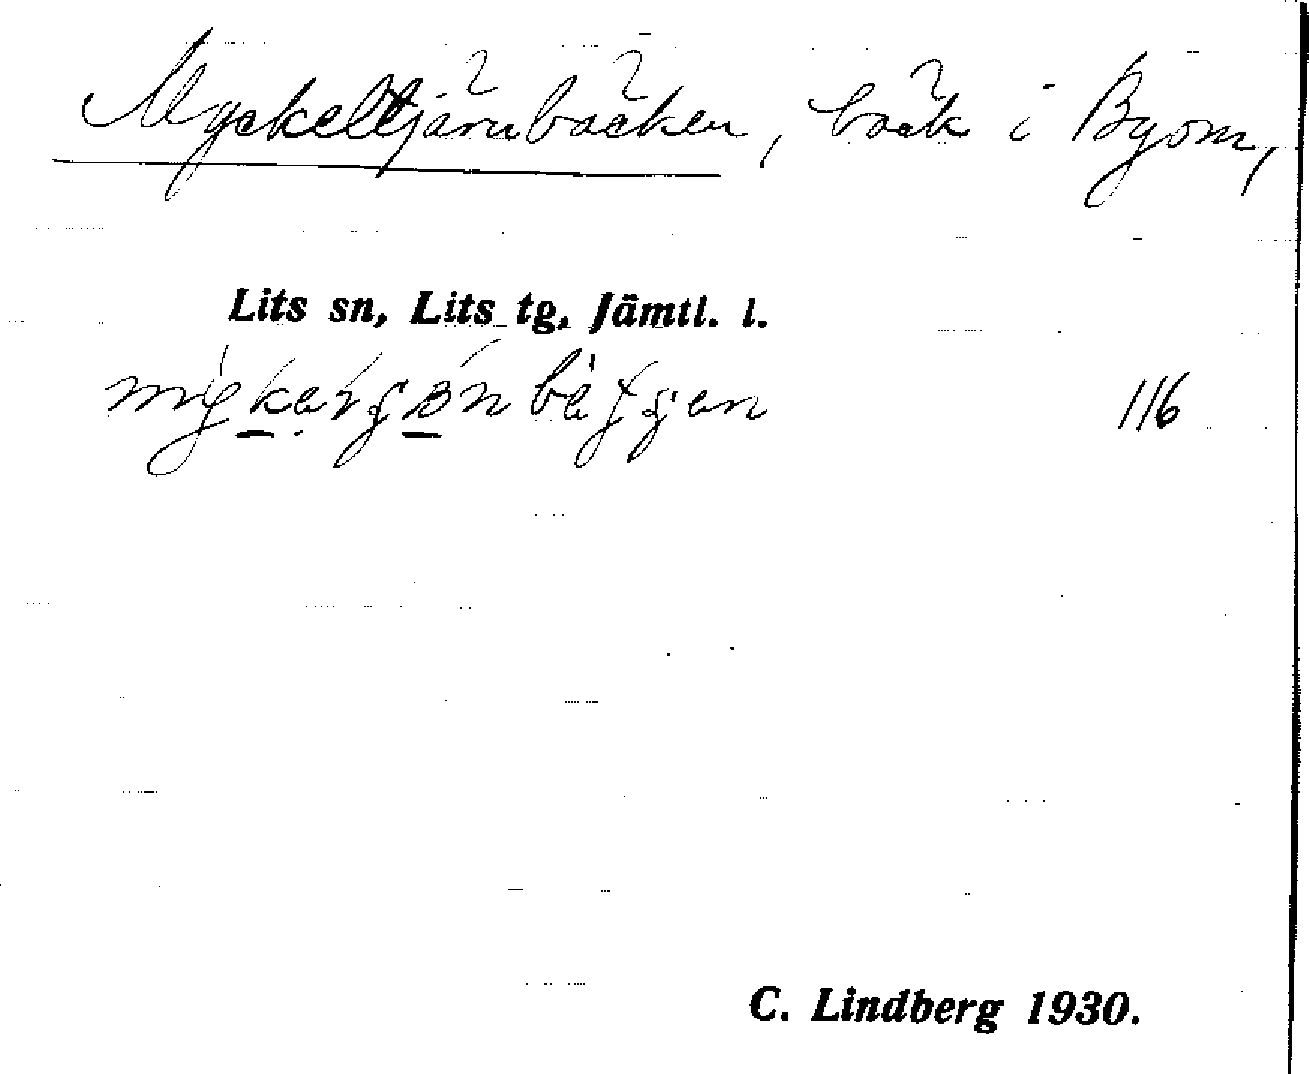 Myckeltjärnbäcken, bäck i Byom,
Lits sn, Lits tg, Jämtl. l.
116
C. Lindberg 1930.